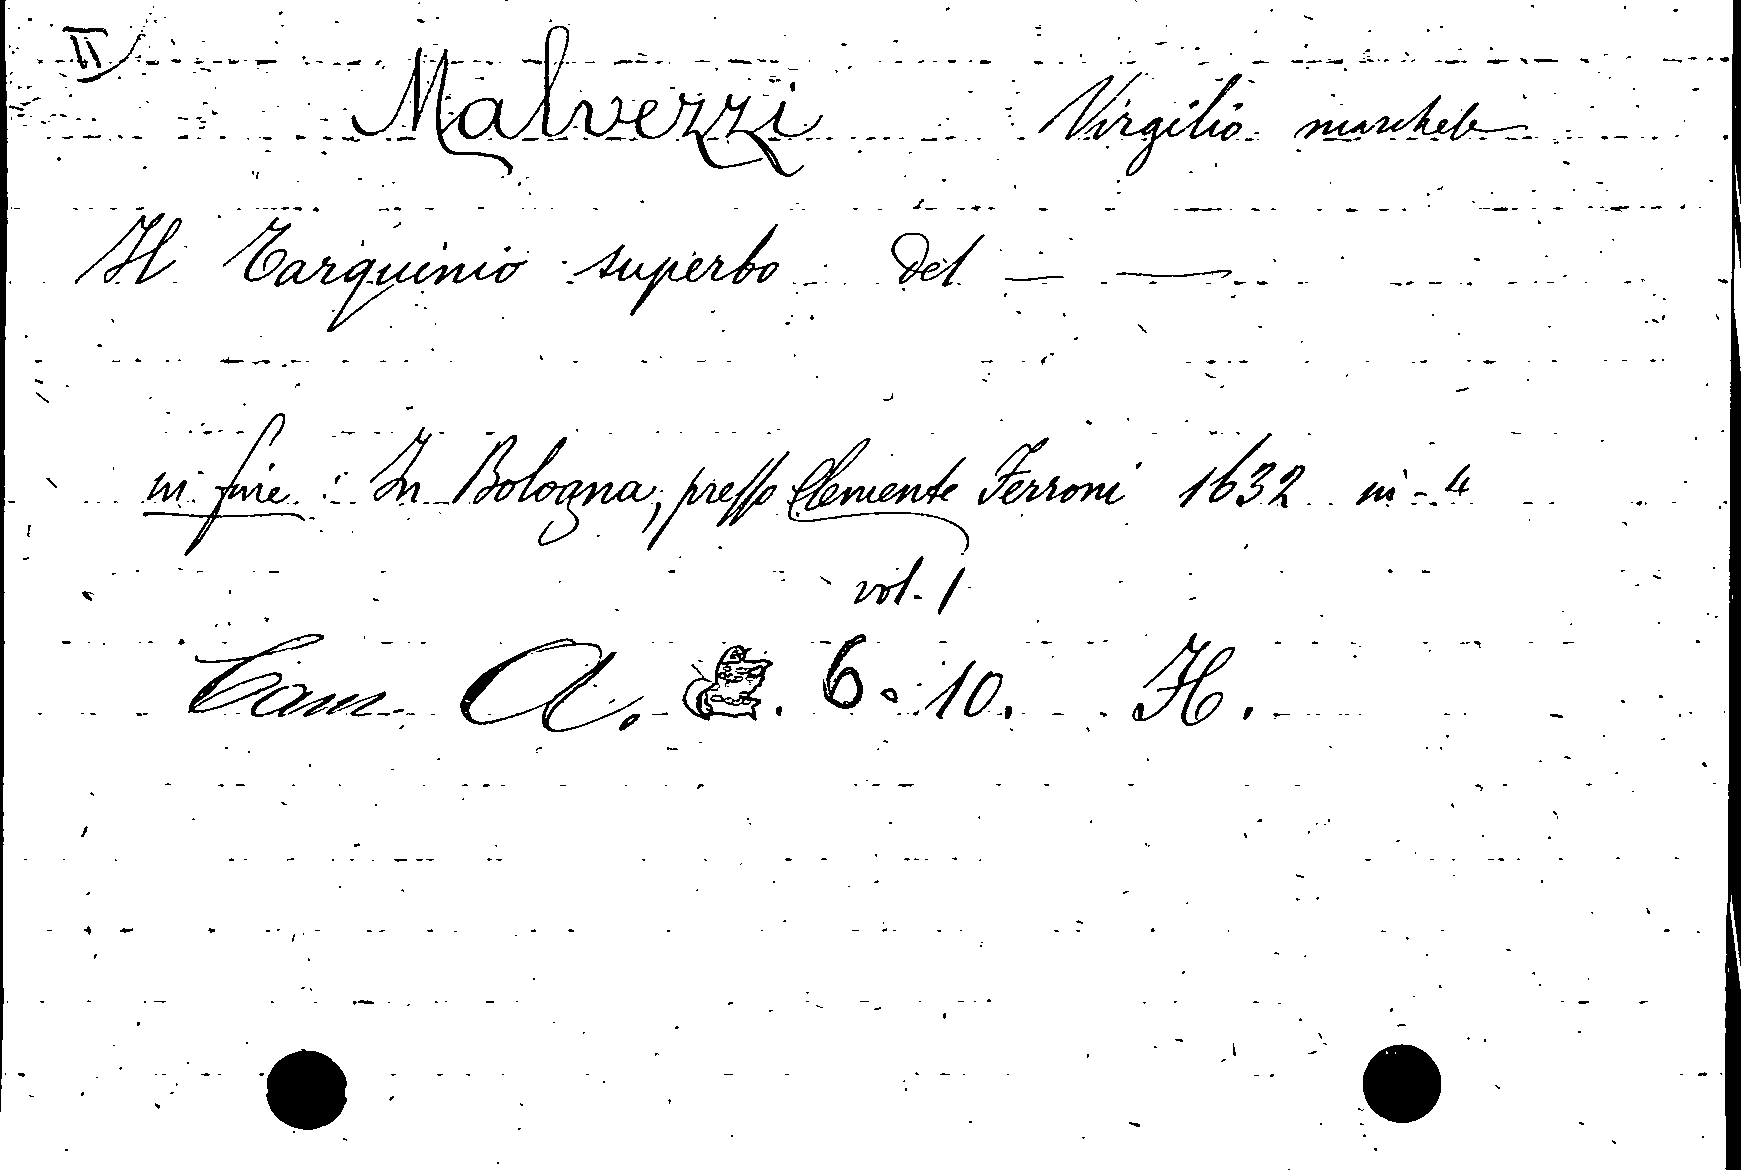 II
Malvezzi Virgilio marchese
Il Tarquinio superbo del — —
in fine: In Bologna, presso Clemente Ferroni 1632 in-4
vol. 1
Cam. A. 6. 10. H.